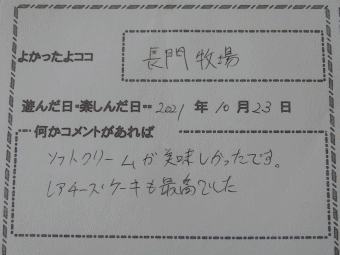 よかったよココ 長門牧場
遊んだ日・楽しんだ日・・ 2021 年 10 月 23 日
何かコメントがあれば
ソフトクリームが美味しかったです。
レアチーズケーキも最高でした